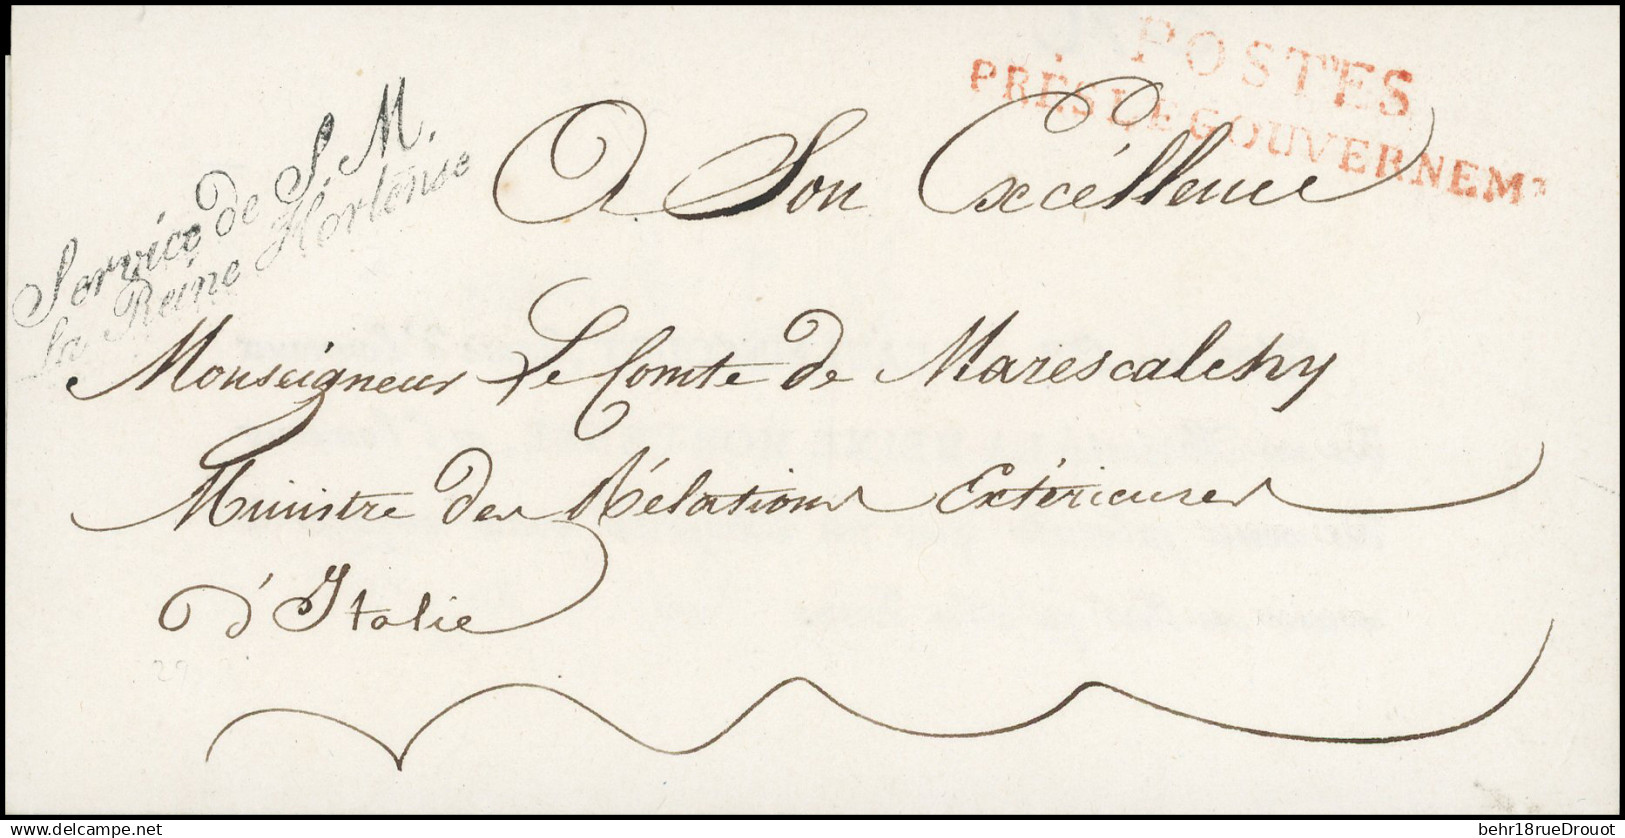 POSTES
PRES LE GOUVERNEMT
Service de S. M.
la Reine Hortense
A Son Excéllence
Monseigneur Le Comte de Marescalchy
Ministre des Rélations Extérieures
d'Italie
behr18rueDrouot